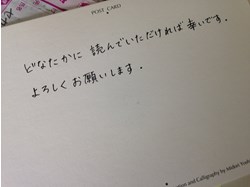 POST CARD
どなたかに 読んでいただければ 幸いです.
よろしく お願いします.
and Calligraphy by